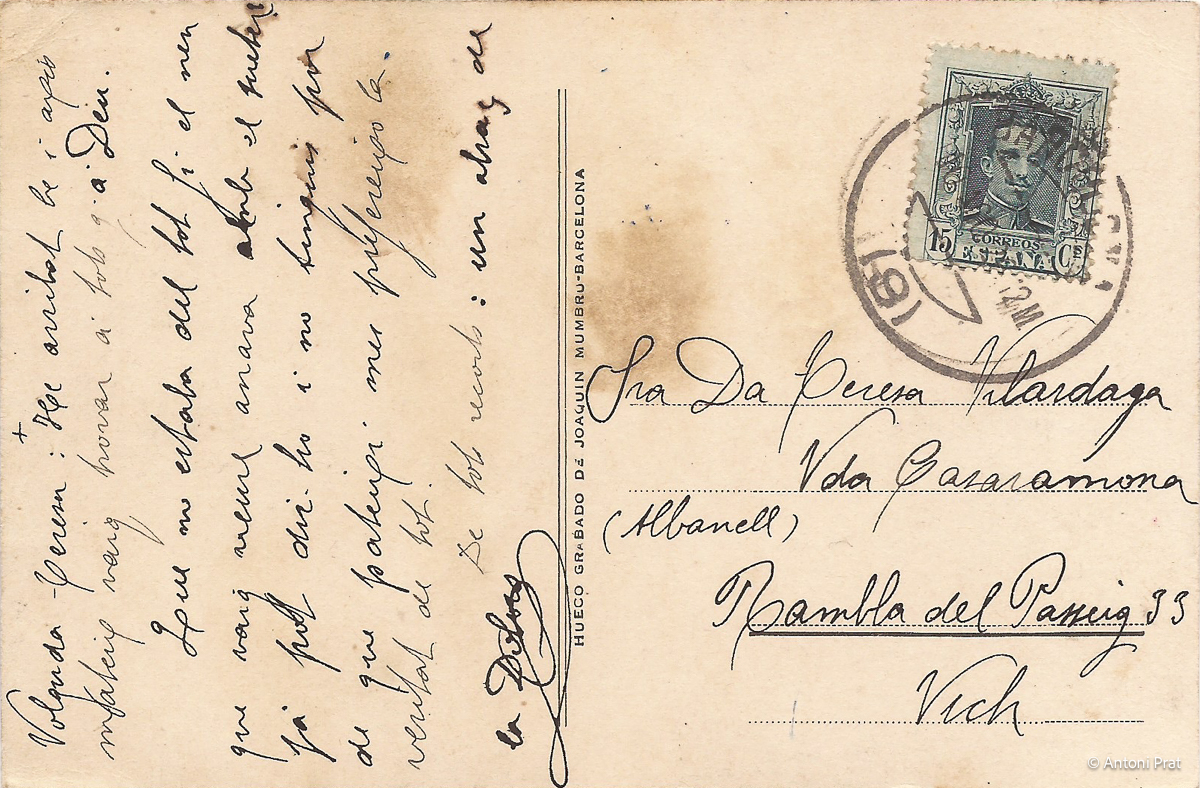 +
Volguda Teresa: He arribat bé i això
mateix vaig trovar a tots g. a Deu.
Que no estaba del tot fi el nen
que vaig veure anava amb el
ja pot dir-ho i no tinguis por
de que pateixi mes
veritat de tot.
De tots records: un abraç de
la Dolors
HUECO GRABADO DE JOAQUIN MUMBRU-BARCELONA
15 CORREOS Cs
ESPAÑA
BARCELONA
Sra Da Teresa Vilardaga
Vda Casaramona
(Albanell)
Rambla del Passeig 33
Vich
© Antoni Prat